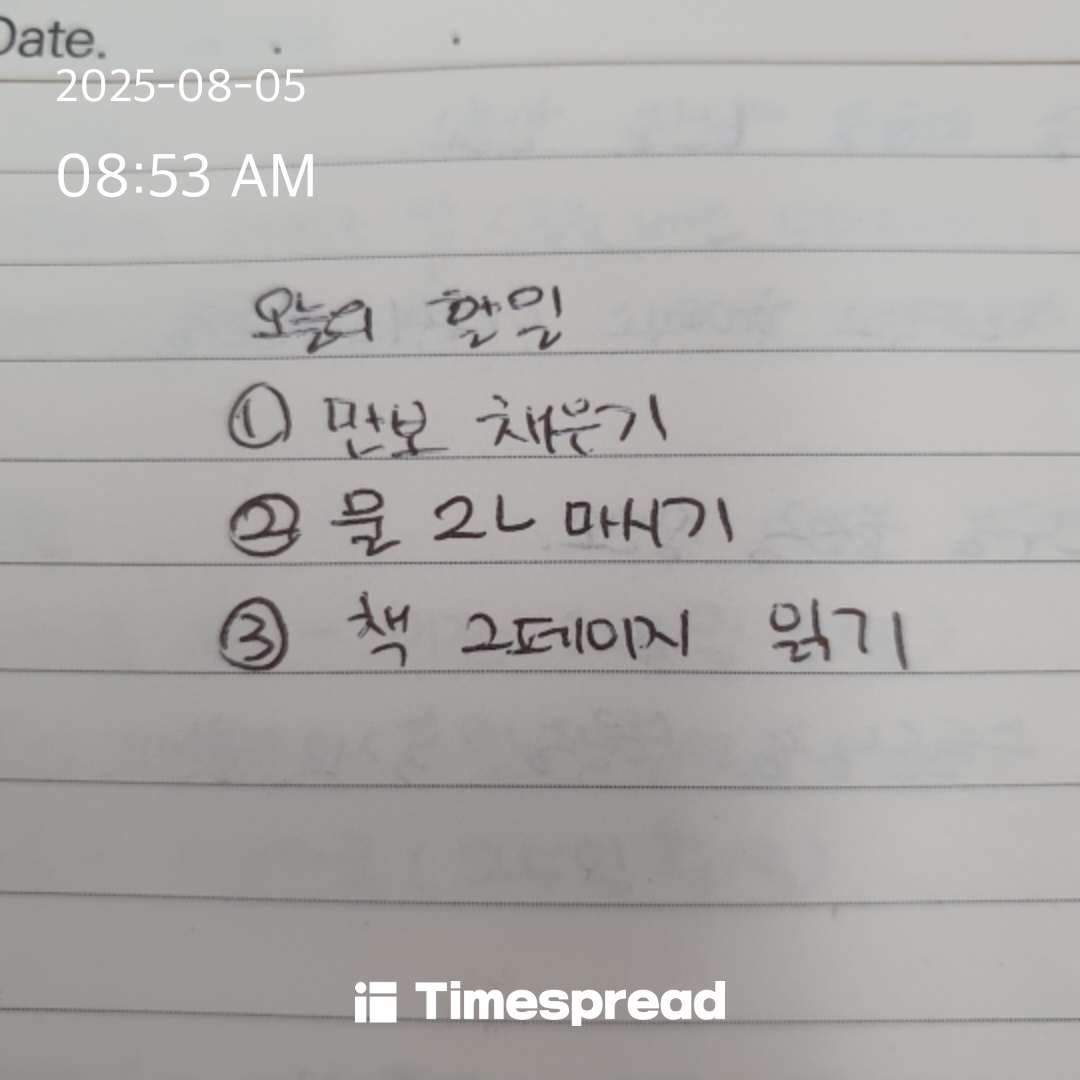 Date.
2025-08-05
08:53 AM
오늘의 할일
① 만보 채운기
② 물 2L 마시기
③ 책 2페이지 읽기
Timespread